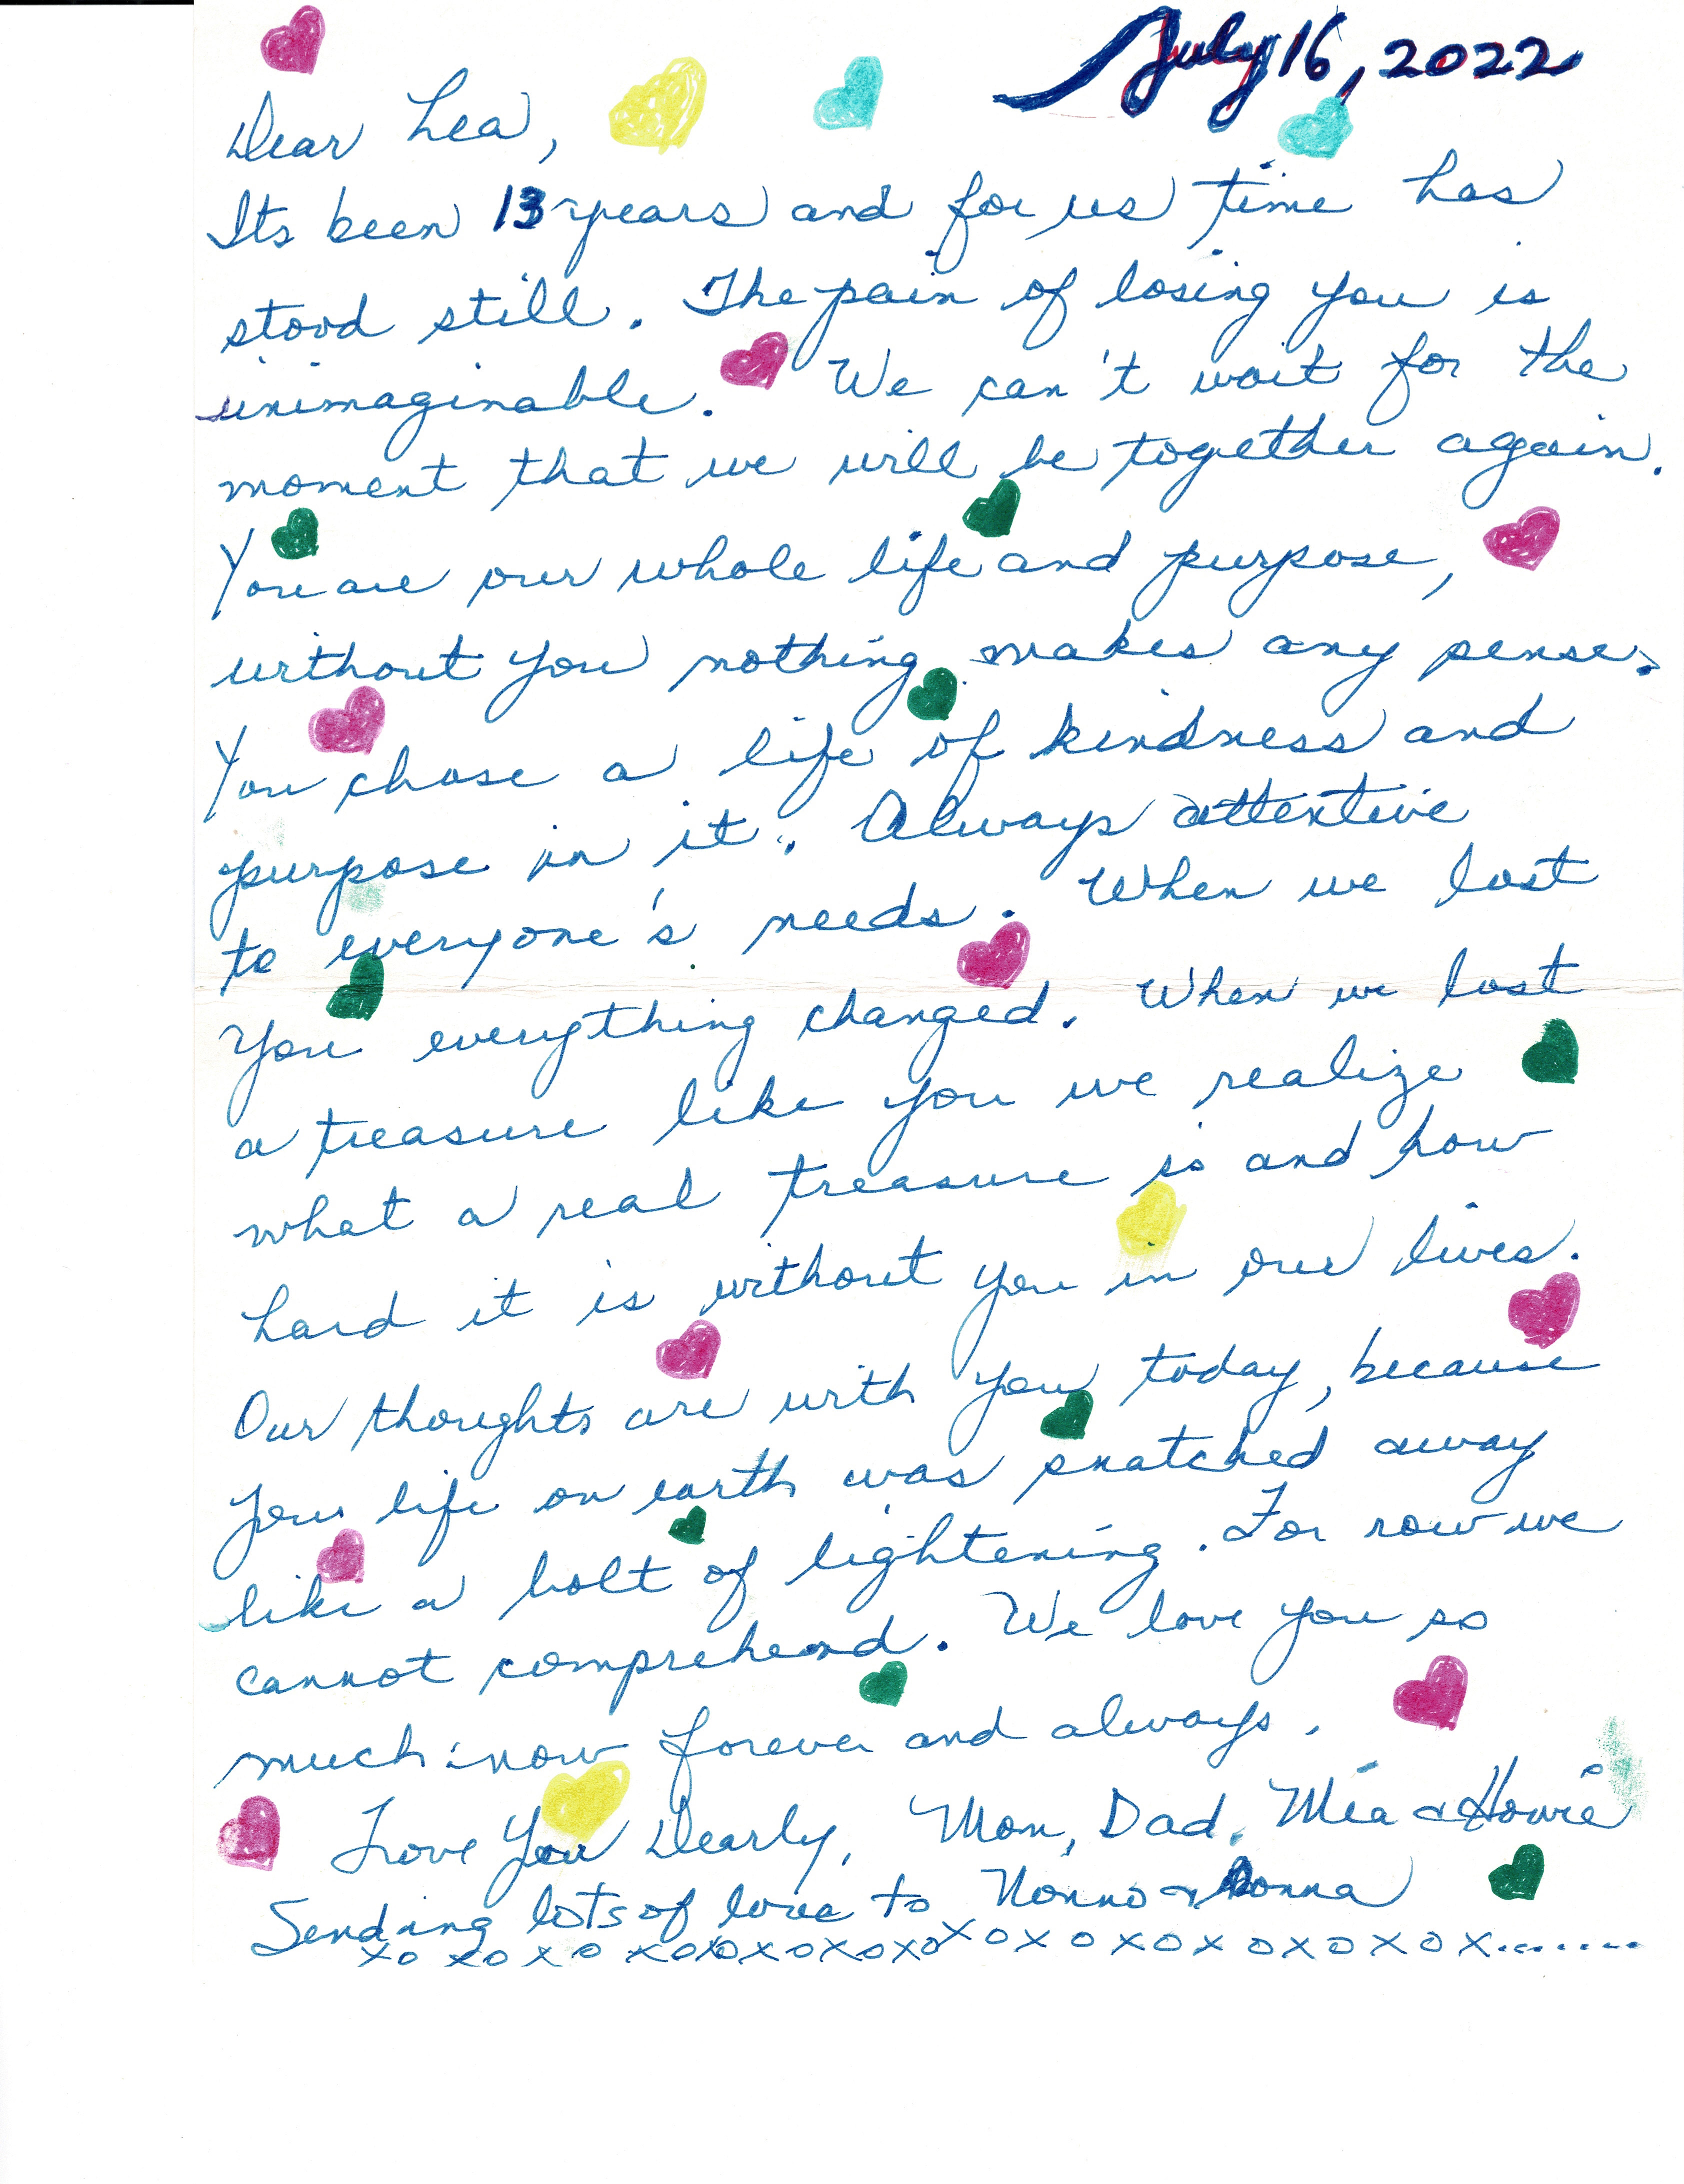 July 16, 2022
Dear Lea,
Its been 13 years and for us time has
stood still. The pain of losing you is
unimaginable. We can't wait for the
moment that we will be together again.
You are our whole life and purpose,
without you nothing makes any sense.
You chose a life of kindness and
purpose in it. Always attentive
to everyone's needs. When we lost
you everything changed. When we lost
a treasure like you we realize
what a real treasure is and how
hard it is without you in our lives.
Our thoughts are with you today, because
your life on earth was snatched away
like a bolt of lightening. For now we
cannot comprehend. We love you so
much now forever and always.
Love You Dearly, Mom, Dad, Mia & Howie
Sending lots of love to Nonno & Nonna
xo xo x o xoxoxoxoxoxoxoxoxoxoxoxox.......